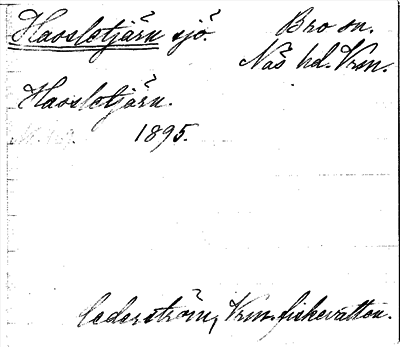 Haoslotjärn sjö.
Bro sn.
Näs hd. Vrm.
Haoslotjärn.
1895.
Cederström, Vrm. fiskevatten.